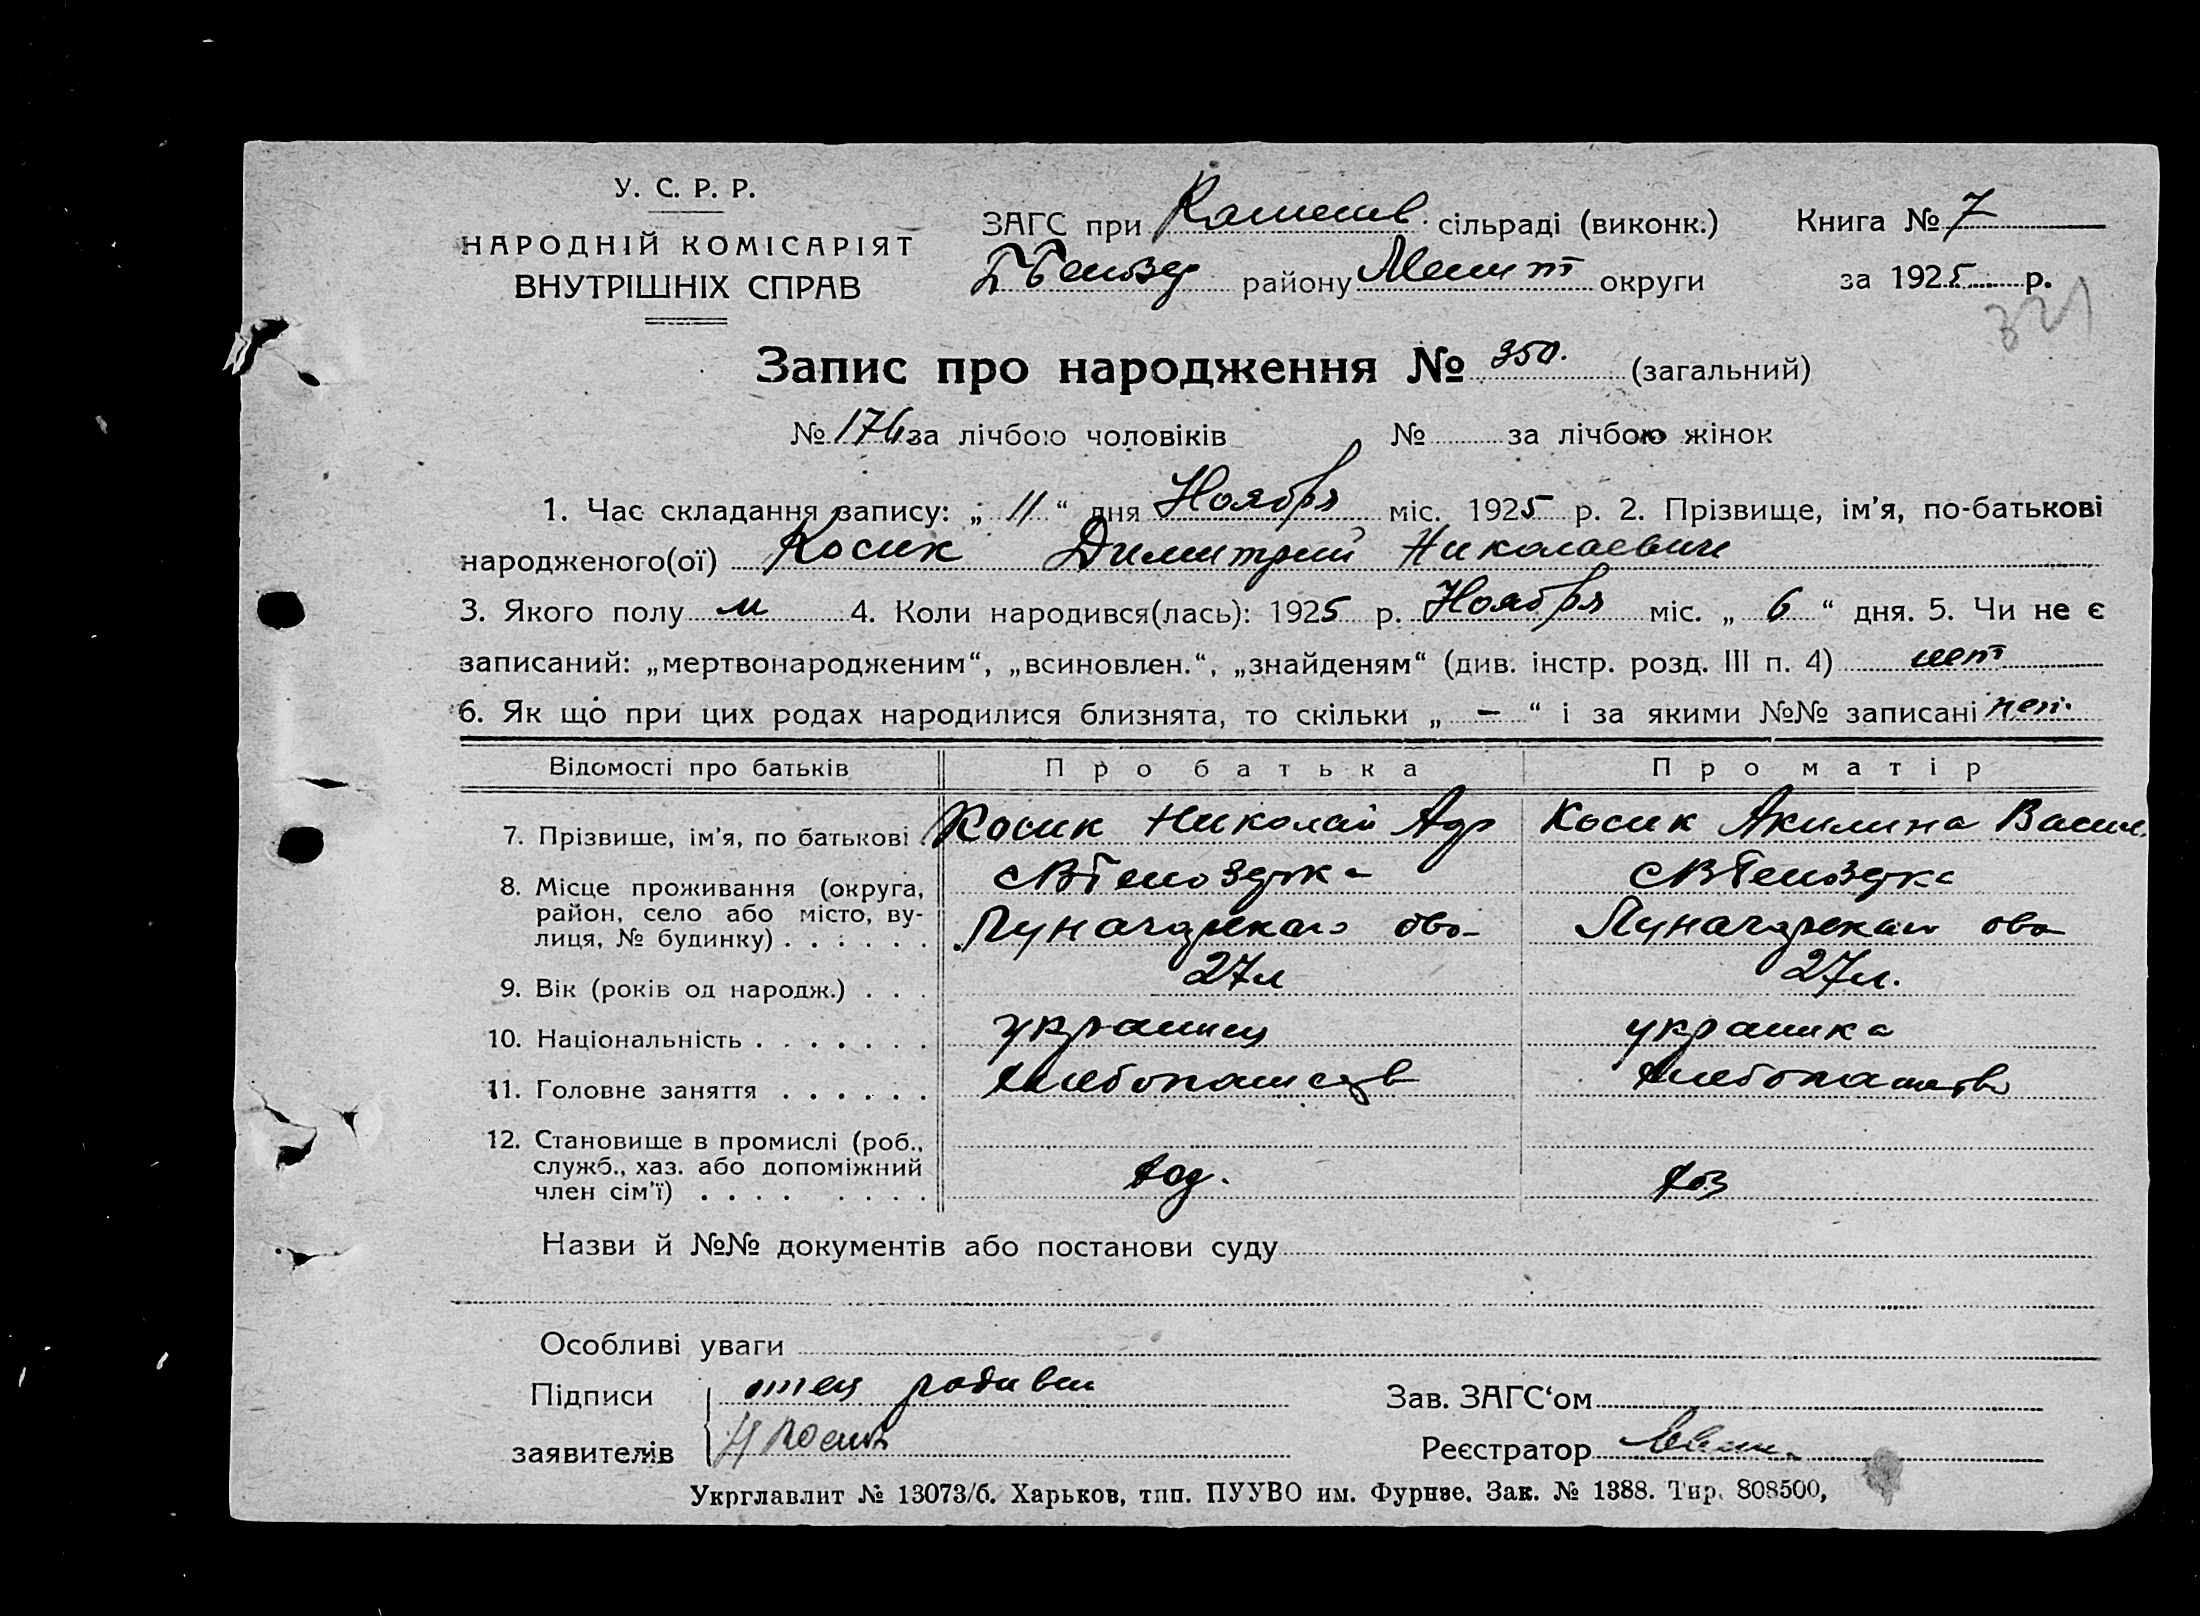 У. С. Р. Р.
НАРОДНІЙ КОМІСАРІЯТ
ВНУТРІШНІХ СПРАВ
ЗАГС при сільраді (виконк.) Книга № 7
району Мелит округи за 1925 р.
321
Запис про народження № 350. (загальний)
№ 176 за лічбою чоловіків № за лічбою жінок
1. Час складання запису: „ 11 “ дня Ноября міс. 1925 р. 2. Прізвище, ім'я, по-батькові
народженого(ої) Косик Димитрий Николаевич
3. Якого полу м 4. Коли народився(лась): 1925 р. Ноября міс. „ 6 “ дня. 5. Чи не є
записаний: „мертвонародженим“, „всиновлен.“, „знайденям“ (див. інстр. розд. III п. 4) нет
6. Як що при цих родах народилися близнята, то скільки „ – “ і за якими №№ записані нет.
Відомості про батьків Про батька Про матір
7. Прізвище, ім'я, по батькові . Косик Николай Адр Косик Акилина Васил.
8. Місце проживання (округа,
район, село або місто, ву-
лиця, № будинку) . . . . . .
Луначарскаго Луначарскаго
9. Вік (років од народж.) . . . 27л 27л.
10. Національність . . . . . . . украинец украинка
11. Головне заняття . . . . . . хлебопашств хлебопашство
12. Становище в промислі (роб.,
служб., хаз. або допоміжний
член сім'ї) . . . . . . . . хоз. хоз
Назви й №№ документів або постанови суду
Особливі уваги
Підписи отец Зав. ЗАГС‘ом
заявителів Н Косик Реєстратор
Укрглавлит № 13073/б. Харьков, тип. ПУУВО им. Фрунзе. Зак. № 1388. Тир. 808500,